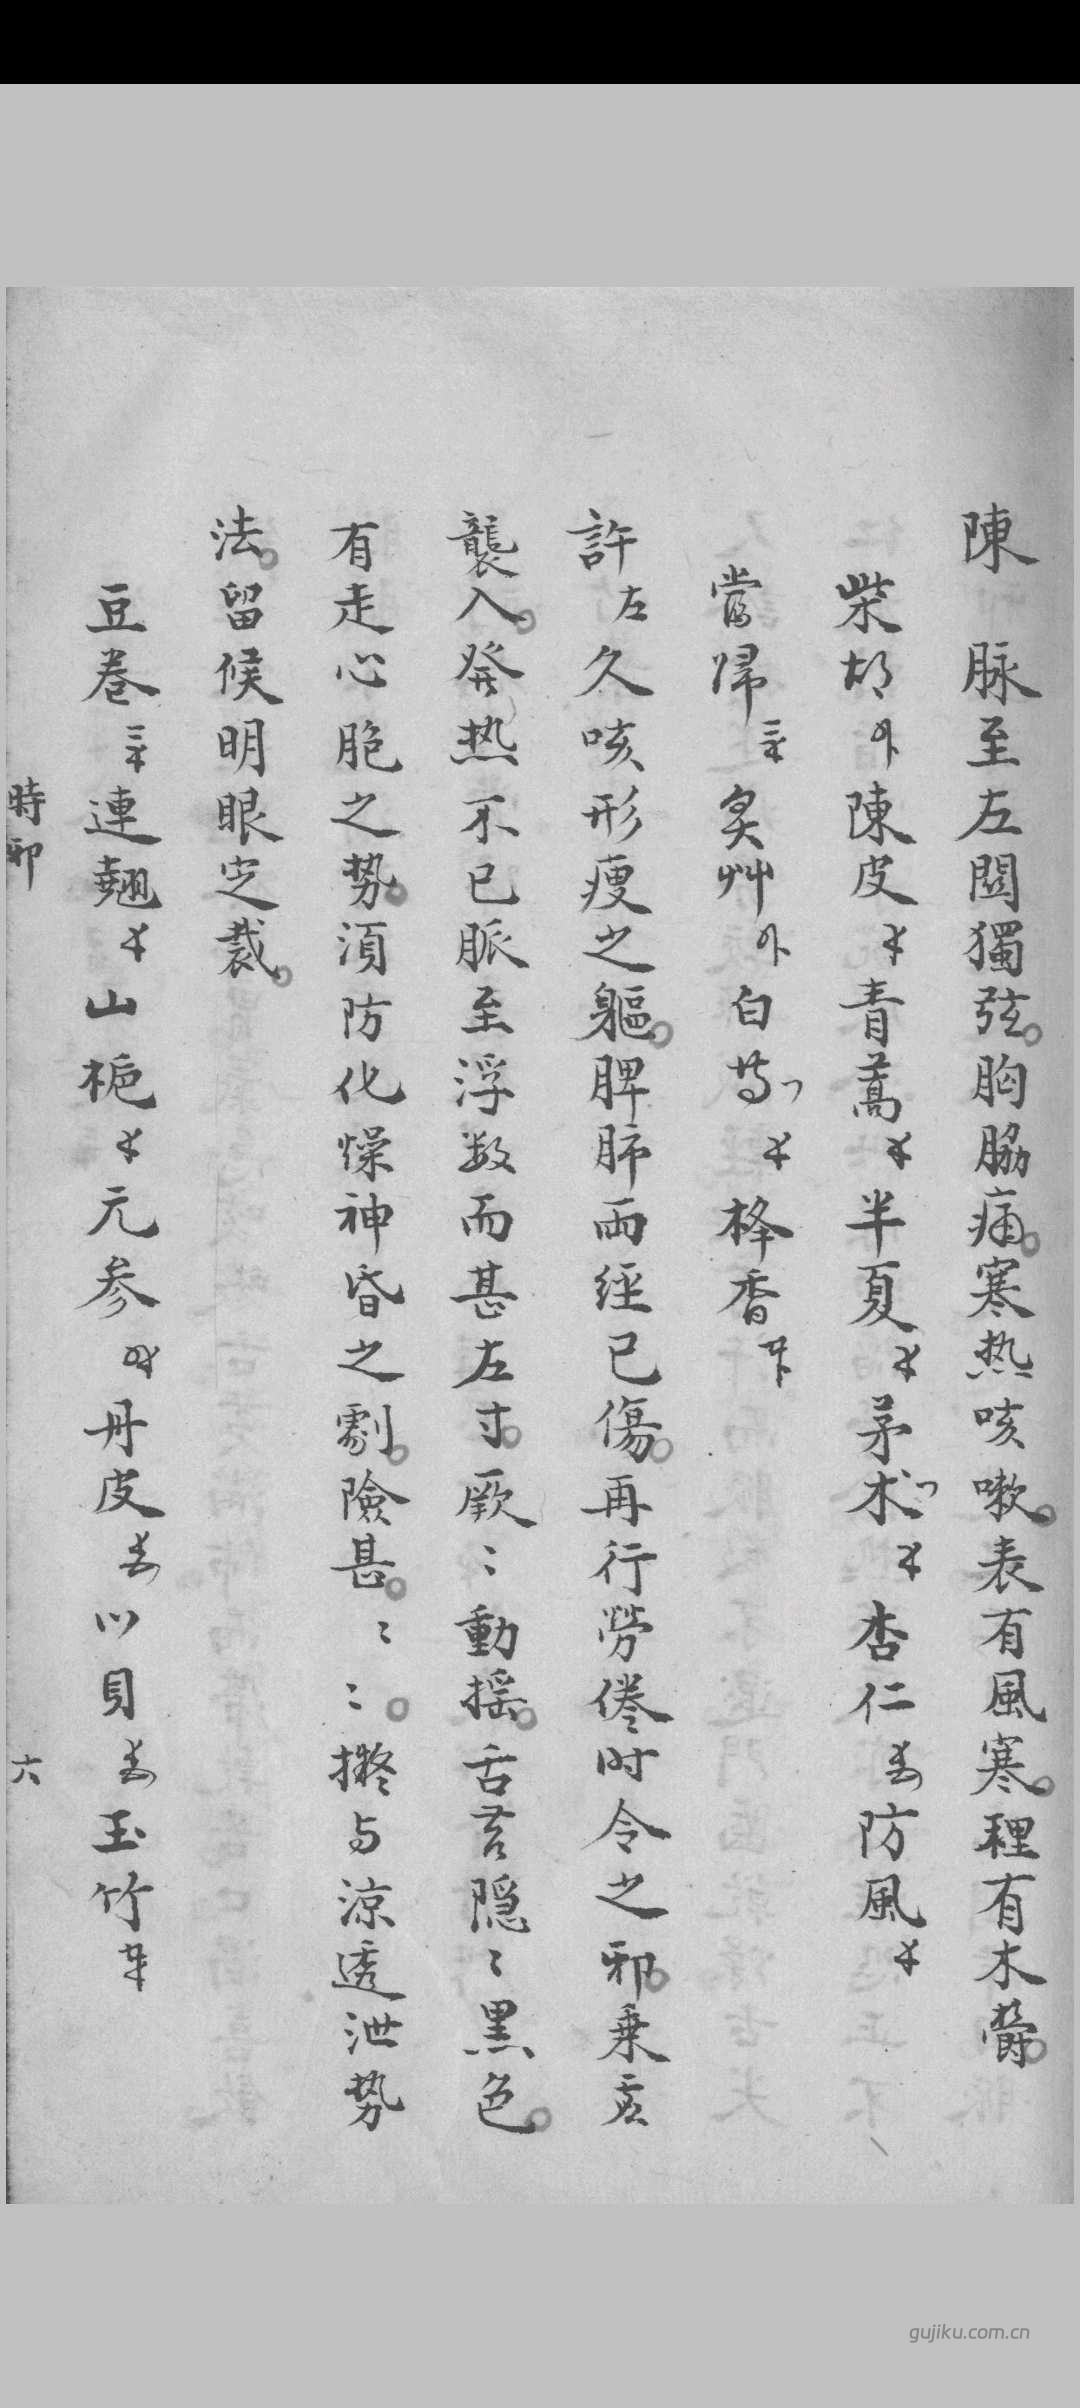 陳 脉至左関獨弦胸脇痛寒热咳嗽表有風寒裡有木欝
柴胡 陳皮 青蒿 半夏 茅术 杏仁 防風
當歸 炙艸 白芍 桻香
許左久咳形瘦之軀脾肺両經已傷再行勞倦时令之邪乗
襲入發热不已脈至浮数而甚左寸厥〻動摇舌苔隐〻黒色
有走心胞之势湏防化燥神昏之劇險甚〻〻擬与涼透泄势
法留候明眼定裁
豆卷 連翹 山栀 元参 丹皮 川貝 玉竹
時邪
六
gujiku.com.cn